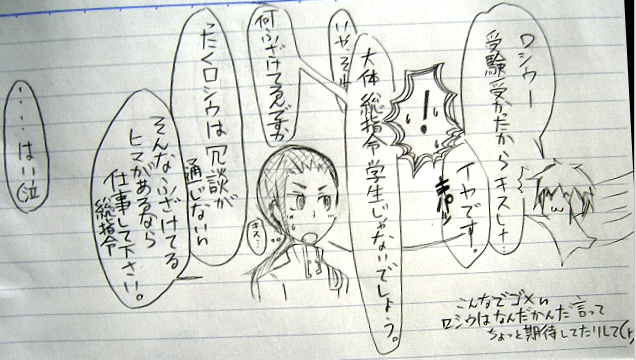 ロシウー
受験受かたからキスしナ…
！
イヤです。
キパッ
大体総指令学生じゃないでしょう。
いや、それ
何ふざけてるんですか
ったくロシウは冗談が
通じないい
そんなふざけてる
ヒマがあるなら
仕事して下さい。
総指令
‥‥はい(泣
キス…
こんなでゴメい
ロシウはなんだかんだ言って
ちょっと期待してたりして(ry